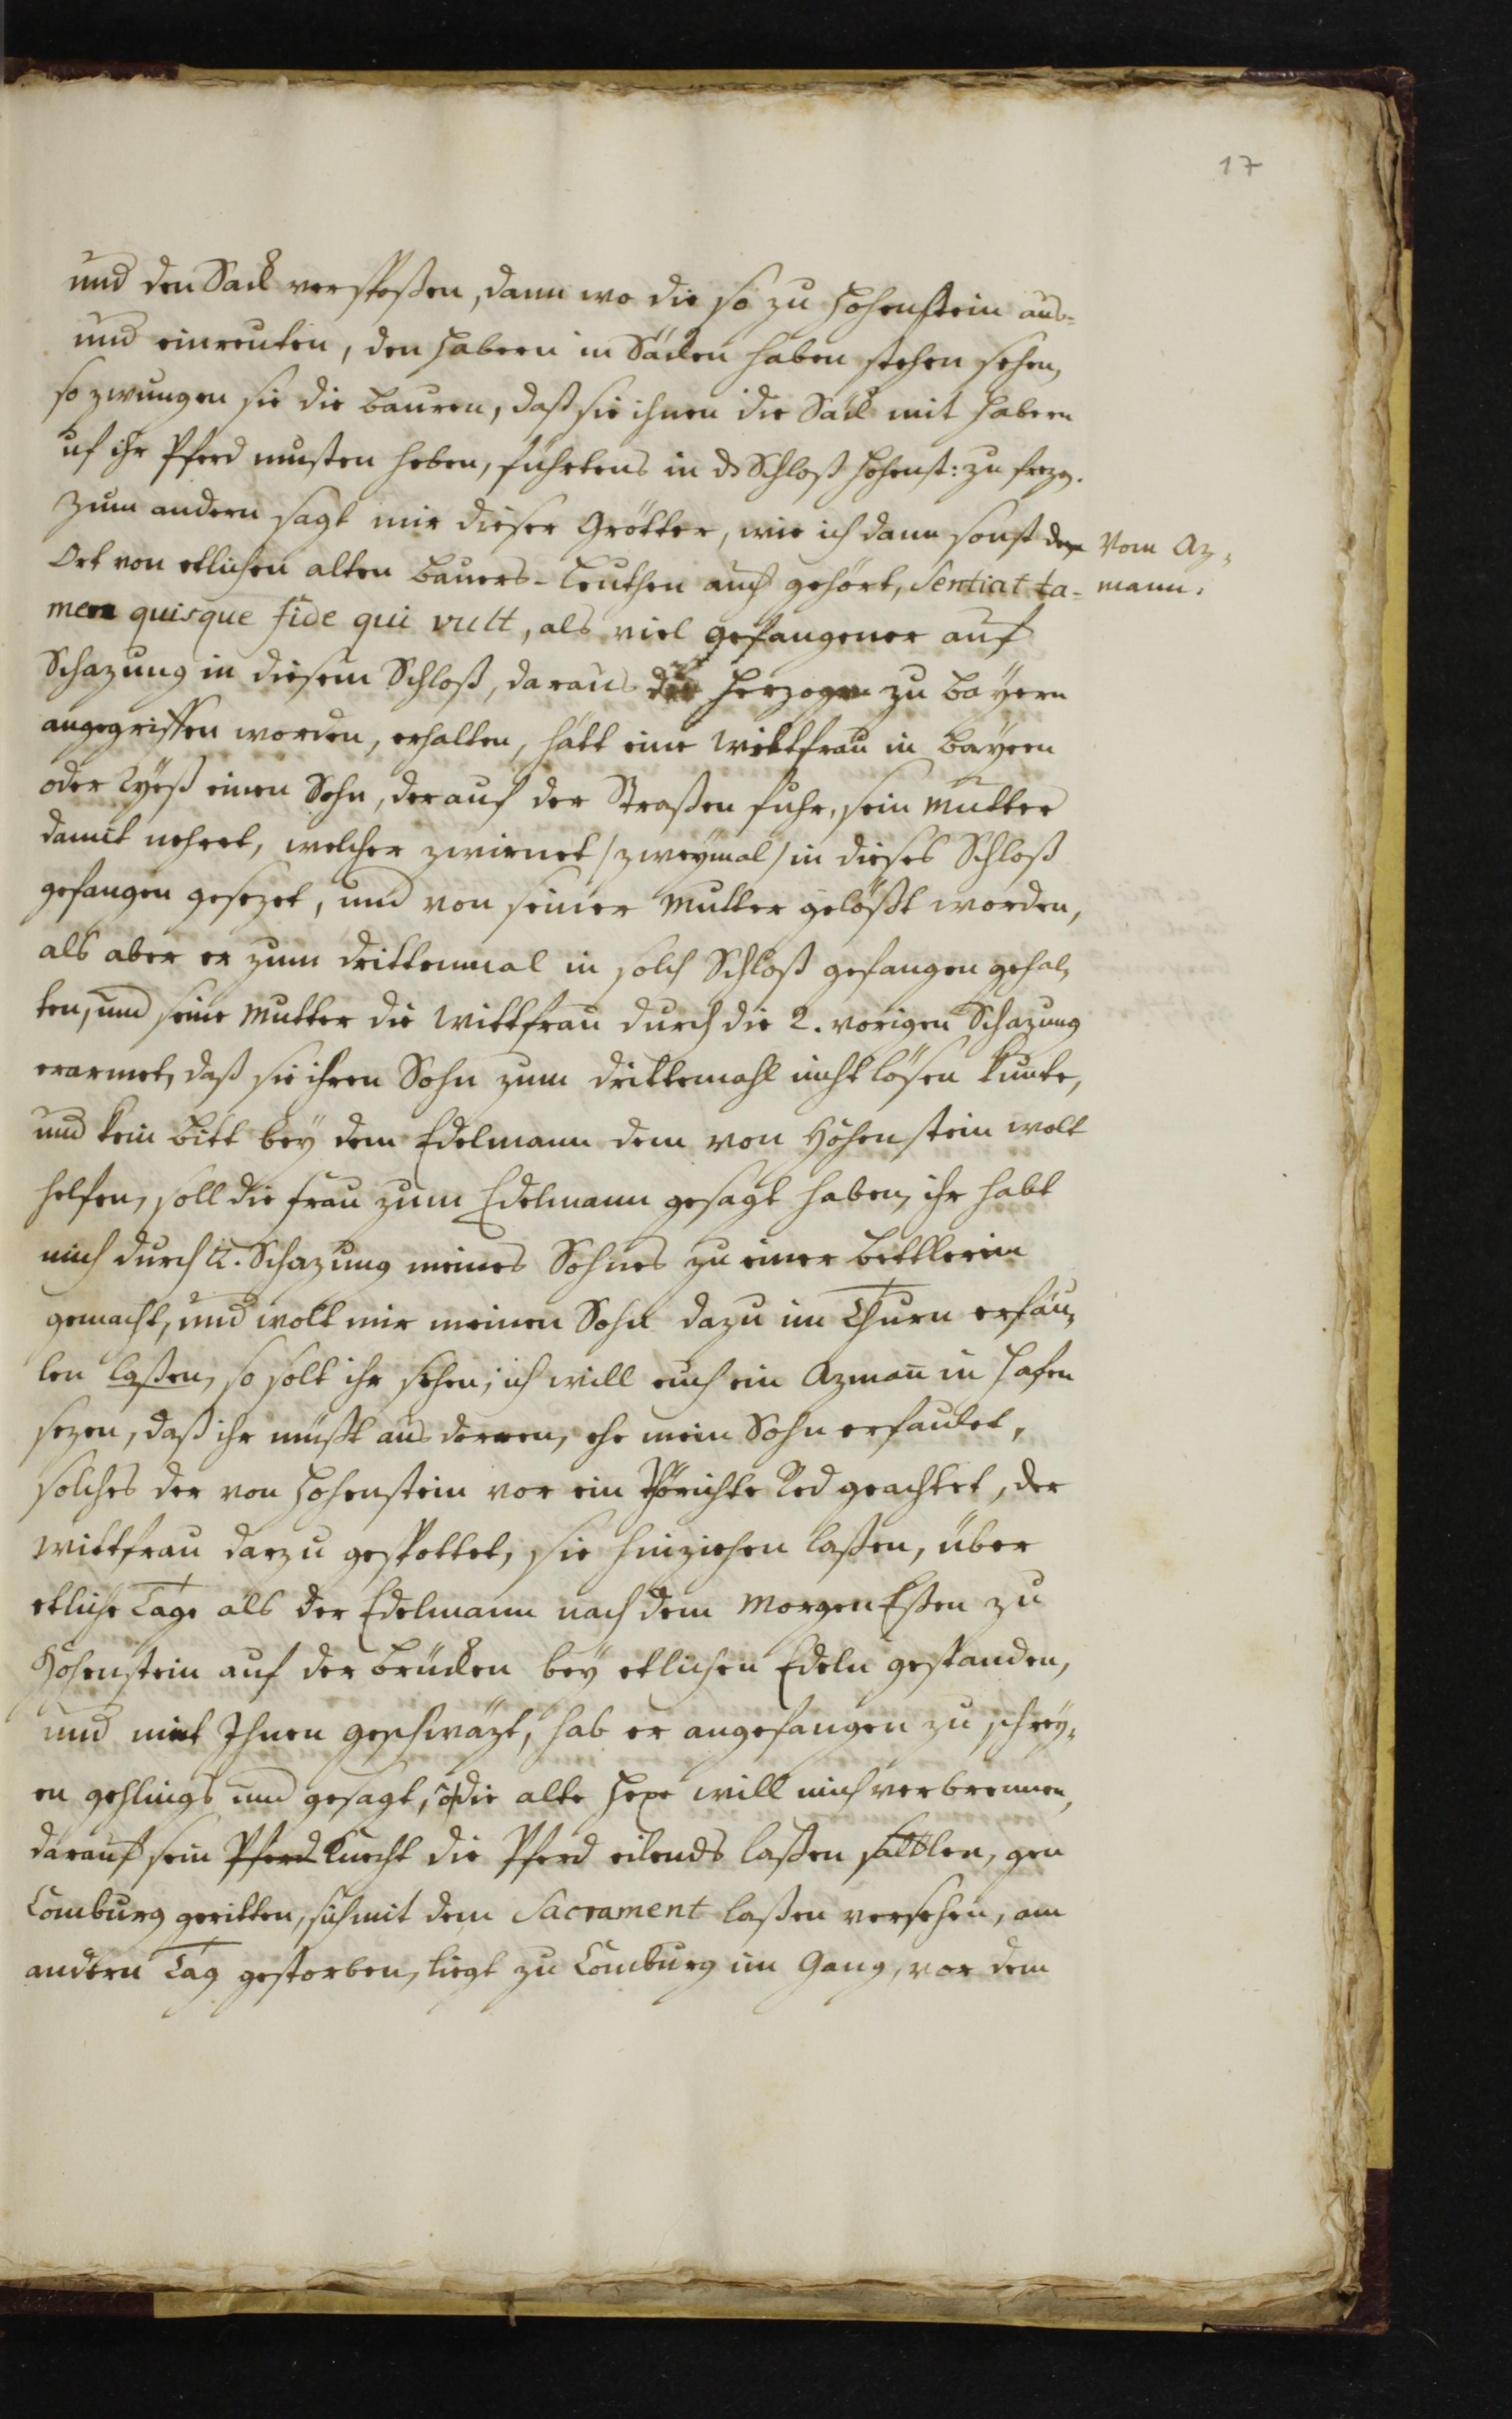 17
und den Sack verstoßen, dann wo die so zu Hohenstein aus-
und einreuten, den Habern in Säcken haben stehen sehen,
so zwungen sie die Bauren, daß sie ihnen die Säck mit Habern
uf ihr Pferd musten heben, führtens in ds Schloß Hohenst: zu
Zum andern sagt mir dieser Grötter, wie ich dann sonst der
Vom Az-
Ort von etlichen alten Bauers-Leuthen auch gehört, Sentiat ta-
mann.
men quisque fide qui vult, als viel gefangener auf
Schazung in diesem Schloß, daraus die Herzogen zu Bayern
angegriffen worden, erhalten, hätt eine Wittfrau in Bayern
oder Ryeß einen Sohn, der auf der Straßen fuhr, sein Mutter
damit nehret, welcher zwirnet /zweymal/ in dieses Schloß
gefangen gesezet, und von seiner Mutter gelößt worden,
als aber er zum drittenmal in solch Schloß gefangen gehal-
ten, und seine Mutter die Wittfrau durch die 2. vorigen Schazung
erarmet, daß sie ihren Sohn zum drittemahl nicht lösen kunte,
und kein Bitt bey dem Edelmann dem von Hohenstein wolt
helfen, soll die Frau zum Edelmann gesagt haben, ihr habt
mich durch 2. Schazung meines Sohnes zu einer Bettlerin
gemacht, und wolt mir meinen Sohn dazu im Thurn erfäu-
len laßen, so solt ihr sehen, ich will euch ein Azmañ in Hafen
sezen, daß ihr müßt ausdorren, ehe mein Sohn erfaulet,
solches der von Hohenstein vor ein Thörichte Red geachtet, der
Wittfrau darzu gespottet, sie hinziehen laßen, über
etliche Tage als der Edelmann nach dem Morgen Eßen zu
Hohenstein auf der Brücken bey etlichen Edeln gestanden,
und mit Ihnen geschwäzt, hab er angefangen zu schrey-
en gehlings und gesagt, o, die alte Hexe will mich verbrennen,
darauf sein Pferd Knecht die Pferd eilends laßen sattlen, gen
Comburg geritten, sich mit dem Sacrament laßen versehen, am
andern Tag gestorben, liegt zu Comburg im Gang, vor dem